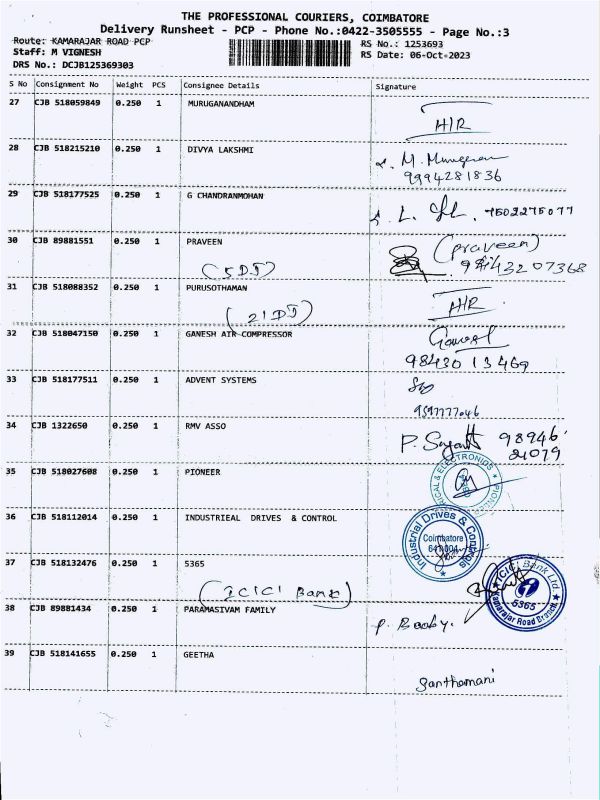 THE PROFESSIONAL COURIERS, COIMBATORE
Delivery Runsheet - PCP - Phone No.:0422-3505555 - Page No.:3
Route: KAMARAJAR ROAD PCP
RS No.: 1253693
Staff: M VIGNESH
RS Date: 06-Oct-2023
DRS No.: DCJB125369303
S No Consignment No Weight PCS Consignee Details Signature
27 CJB 518059849 0.250 1 MURUGANANDHAM
H/R
28 CJB 518215210 0.250 1 DIVYA LAKSHMI
9994281836
29 CJB 518177525 0.250 1 G CHANDRANMOHAN
7502275077
30 CJB 89881551 0.250 1 PRAVEEN
(Praveen)
(5DJ)
31 CJB 518088352 0.250 1 PURUSOTHAMAN
H/R
(21DJ)
32 CJB 518047150 0.250 1 GANESH AIR COMPRESSOR
98430 13469
33 CJB 518177511 0.250 1 ADVENT SYSTEMS
9597777046
34 CJB 1322650 0.250 1 RMV ASSO
98946
21079
35 CJB 518027608 0.250 1 PIONEER
ELECTRONICS
36 CJB 518112014 0.250 1 INDUSTRIEAL DRIVES & CONTROL
Industrial Drives & Controls
Coimbatore
37 CJB 518132476 0.250 1 5365
(ICICI Bank)
ICICI Bank Ltd.
5365
Kamarajar Road Branch
38 CJB 89881434 0.250 1 PARAMASIVAM FAMILY
P. Booby.
39 CJB 518141655 0.250 1 GEETHA
Santhamani